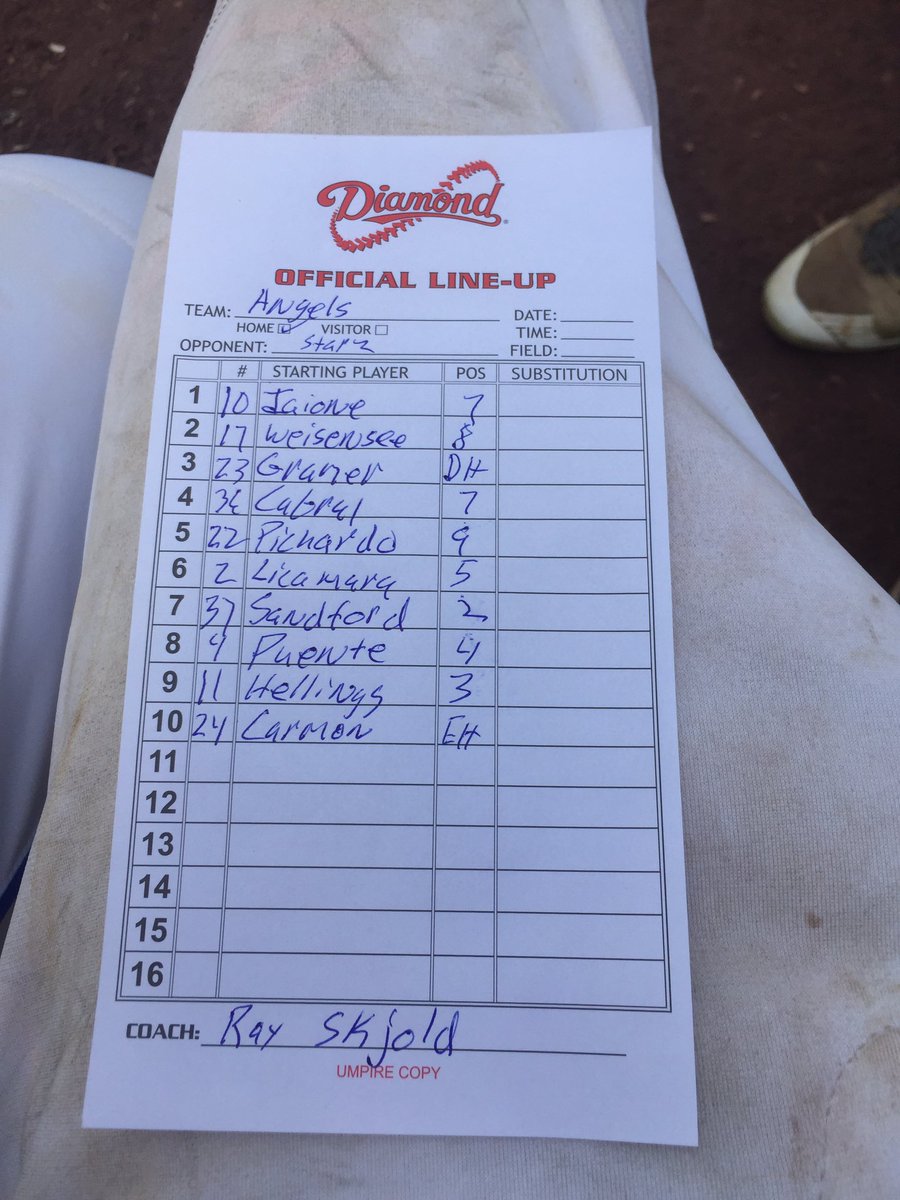 Diamond
OFFICIAL LINE-UP
TEAM: Angels DATE:
HOME VISITOR TIME:
OPPONENT: Starz FIELD:
# STARTING PLAYER POS SUBSTITUTION
1 10 Iaione 7
2 17 Weisensee 8
3 23 Gramer DH
4 36 Cabral 7
5 22 Pichardo 9
6 2 Licamara 5
7 37 Sandford 2
8 4 Puente 4
9 11 Hellings 3
10 24 Carmon EH
11
12
13
14
15
16
COACH: Ray Skjold
UMPIRE COPY